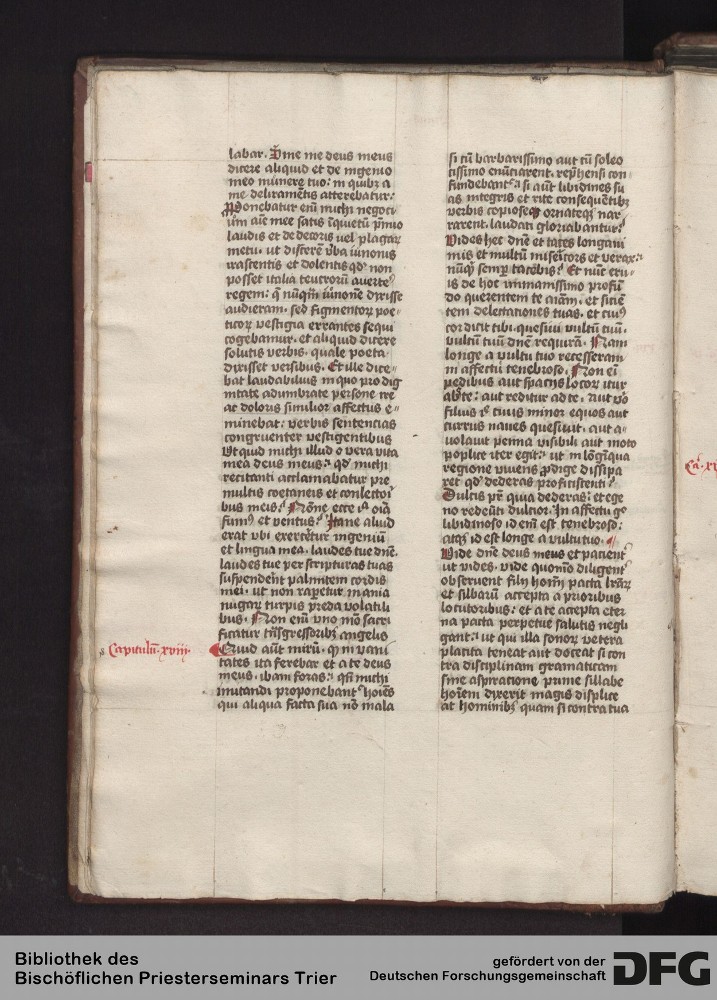 labar. Dīne me deus meus
dicere aliquid et de ingenio
meo munere tuo: in quibꝫ a
me deliramētis atterebatur:
Proponebatur enī michi negoci⸗
um aīe mee satis īquietū p̄mio
laudis et de decoris uel plagarꝫ
metu. ut dicerē v̄ba iunonis
irascentis et dolentis qd̓ non
posset italia teucrorū auerte᷒
regem: q̄ nūqm̄ iūnonē dixisse
audieram. sed figmentorꝫ poe⸗
ticorꝫ vestigia errantes sequi
cogebamur. et aliquid dicere
solutis verbis. quale poeta
dixisset versibus. Et ille dice⸗
bat laudabilius in quo pro dig
nitate adumbrate persone ire
ac doloris similior affectus e⸗
minebat: verbis sentencias
congruenter vestigentibus
Ut quid michi illud o vera vita
mea deus meus: qd̓ michi
recitanti acclamabatur pre
multis coetaneis et conlectori
bus meis: Nōne ecce iᵃ oīa
fumꝰ et ventus: Itane aliud
erat vbi exercēr̄tur ingeniū
et lingua mea. laudes tue dn̄e.
laudes tue per scripturas tuas
suspenderēt palmitem cordis
mei. ut non raperetur inania
nugarꝫ turpis preda volatili
bus. Non enī vno mō sacri
ficatur tn̄sgressoribꝫ angelis
Capitulū xviij.
Quid aūt mirū. qꝫ in vani
tates ita ferebar et a te deus
meus. ibam foras: qn̄ michi
imitandi proponebantᷣ hoīes
qui aliqua facta sua nō mala
si cū barbarissimo aut cū soleo
cissimo enūciarent. rep̄hensi con
fundebantᷣ: si aūt libidines su
as integris et rite consequētibꝫ
verbis copioseqꝫ ornateqꝫ nar
rarent. laudati gloriabantur:
Vides hec dn̄e et taces longani
mis et multū misericors et verax:
nūqꝫ semp̄ tacebis: Et nūc eru⸗
is de hoc inmanissimo profū
do querentem te aīam. et sicīe
tem delectationes tuas. et cuiꝰ
cor dicit tibi. quesiui vultū tuū.
vultū tuū dn̄e requirā. Nam
longe a vultu tuo recesseram
in affectu tenebroso. Non eī
pedibus aut spacijs locorꝫ itur
abs te: aut reditur ad te. aut vō
filius iꝰ tuus minor equos aut
currus naues quesiuit. aut a⸗
volauit penna visibili aut moto
poplice iter egit: ut in lōgīqua
regione viuens ꝓdige dissipa
ret qd̓ dederas proficiscenti:
Dulcis pr̄ quia dederas: et ege
no redeūti dulcior. In affectu gͦ
libidinoso id enī est tenebroso:
atqꝫ id est longe a vultu tuo.
Vide dn̄e deus meus et pacientᷣ
ut vides. vide quomō diligentᷣ
obseruent filij hoīm pacta lrārꝫ
et sillabarū accepta a prioribus
locutoribus: et a te accepta eter
na pacta perpetue salutis negli
gant: ut qui illa sonorꝫ vetera
placita teneat aut doceat si con
tra disciplinam gramaticam
sine aspiracione prime sillabe
hoīem dixerit magis displice
at hominibꝫ quam si contra tua
Bibliothek des
Bischöflichen Priesterseminars Trier
gefördert von der
Deutschen Forschungsgemeinschaft
DFG